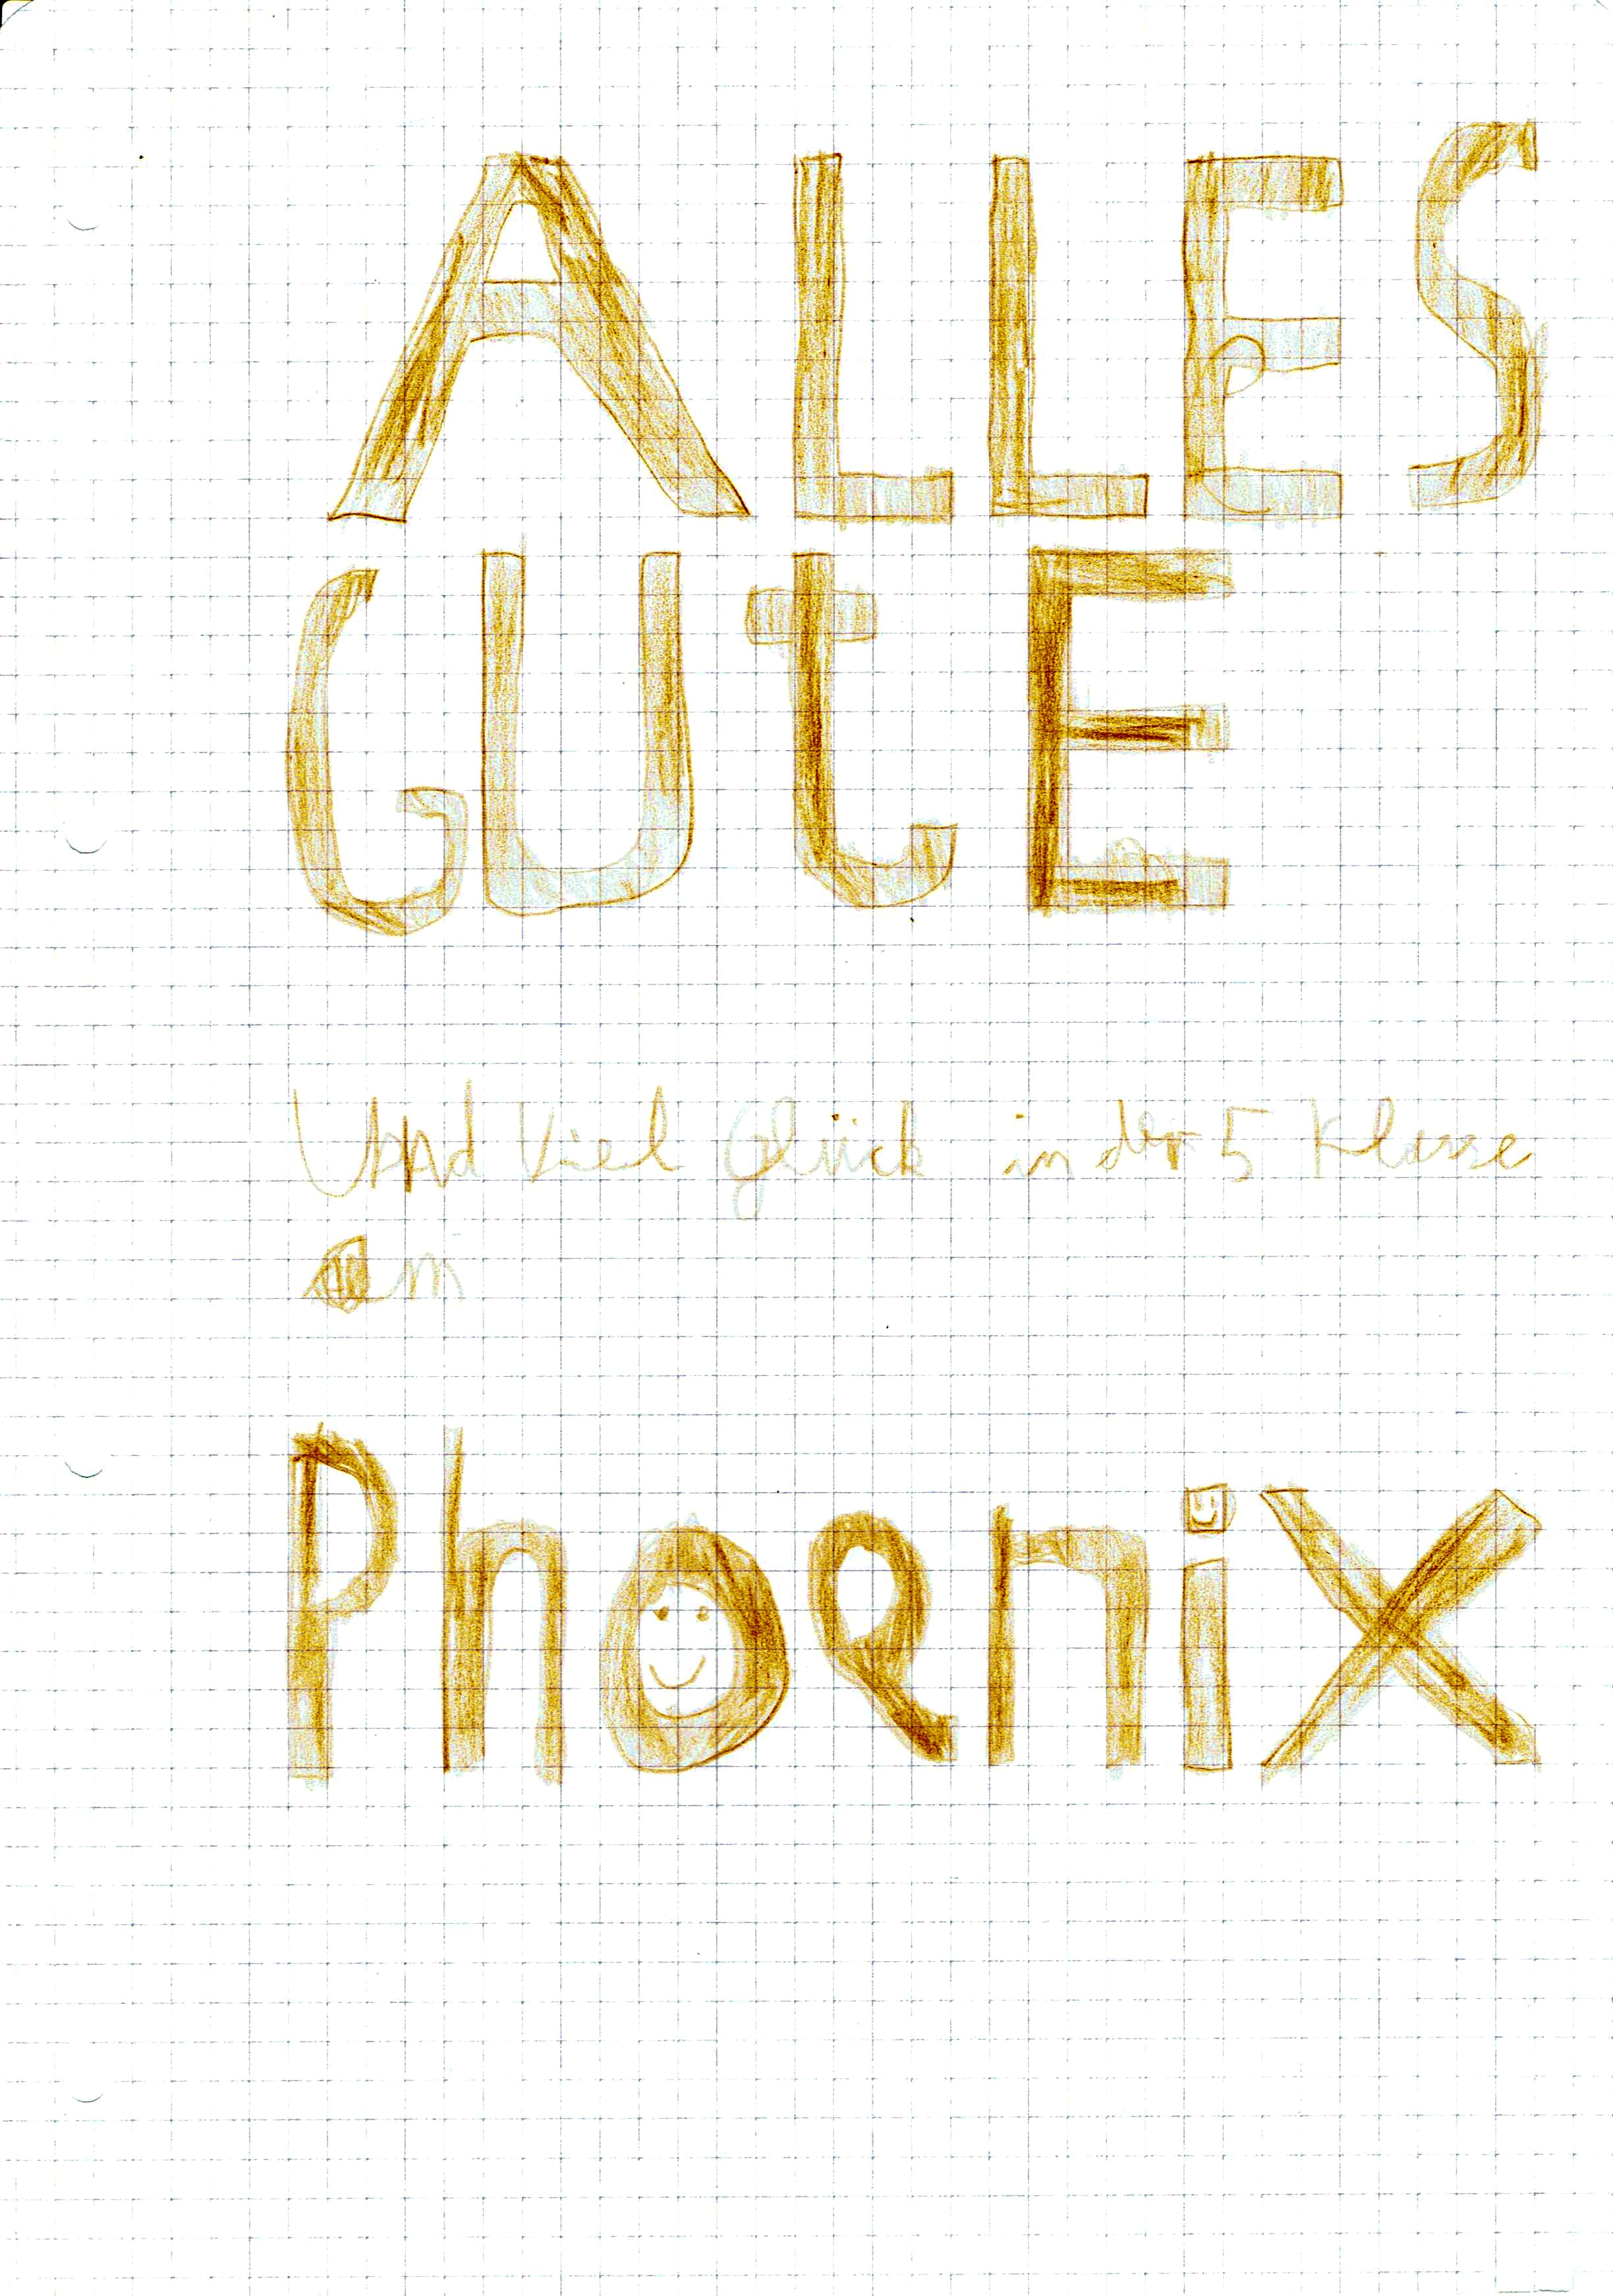 ALLES
GUtE
Und Viel Glück in der 5 Klasse
Phoenix